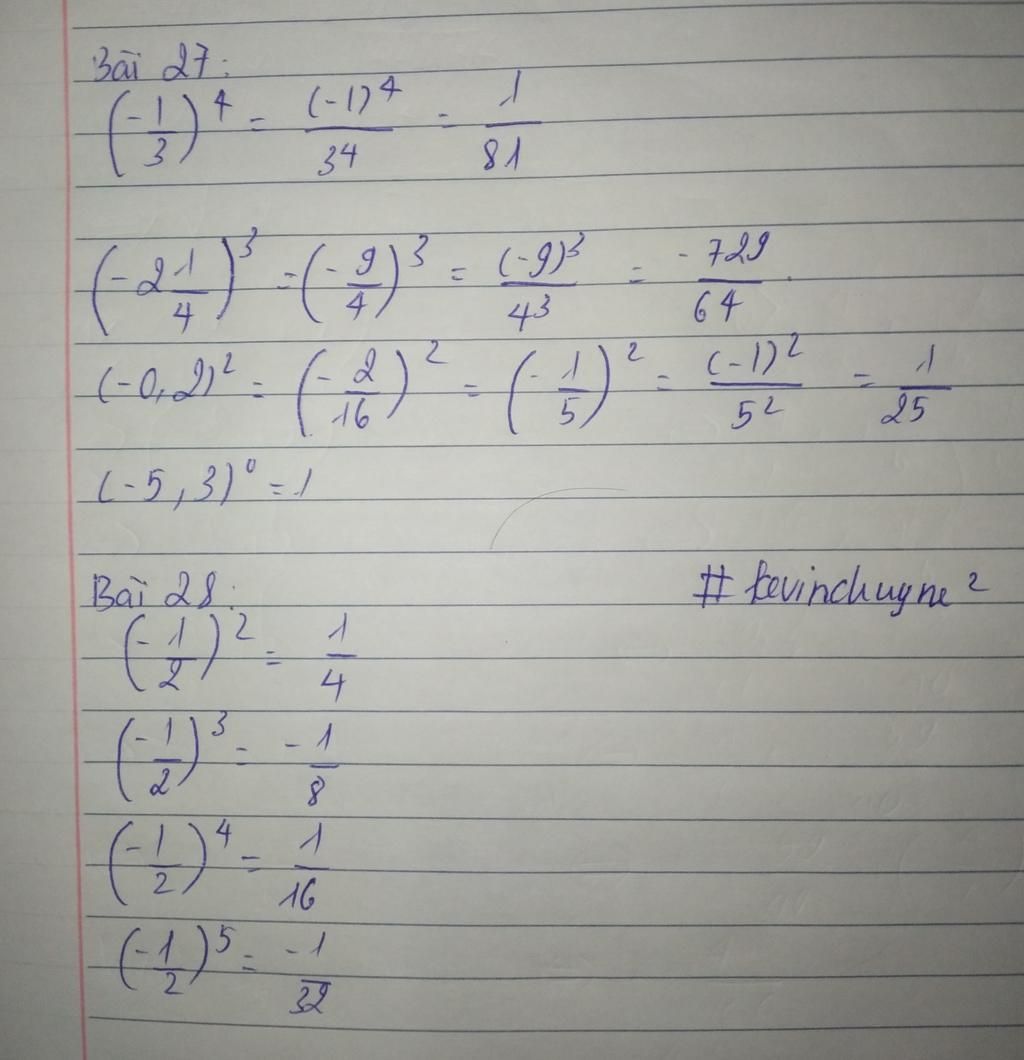 Bài 27:
(-1/3)^4 = (-1)^4/3^4 = 1/81
(-2 1/4)^3 = (-9/4)^3 = (-9)^3/4^3 = -729/64
(-0,2)^2 = (-2/16)^2 = (-1/5)^2 = (-1)^2/5^2 = 1/25
(-5,3)^0 = 1
Bài 28:
# kevinchuyne 2
(-1/2)^2 = 1/4
(-1/2)^3 = -1/8
(-1/2)^4 = 1/16
(-1/2)^5 = -1/32